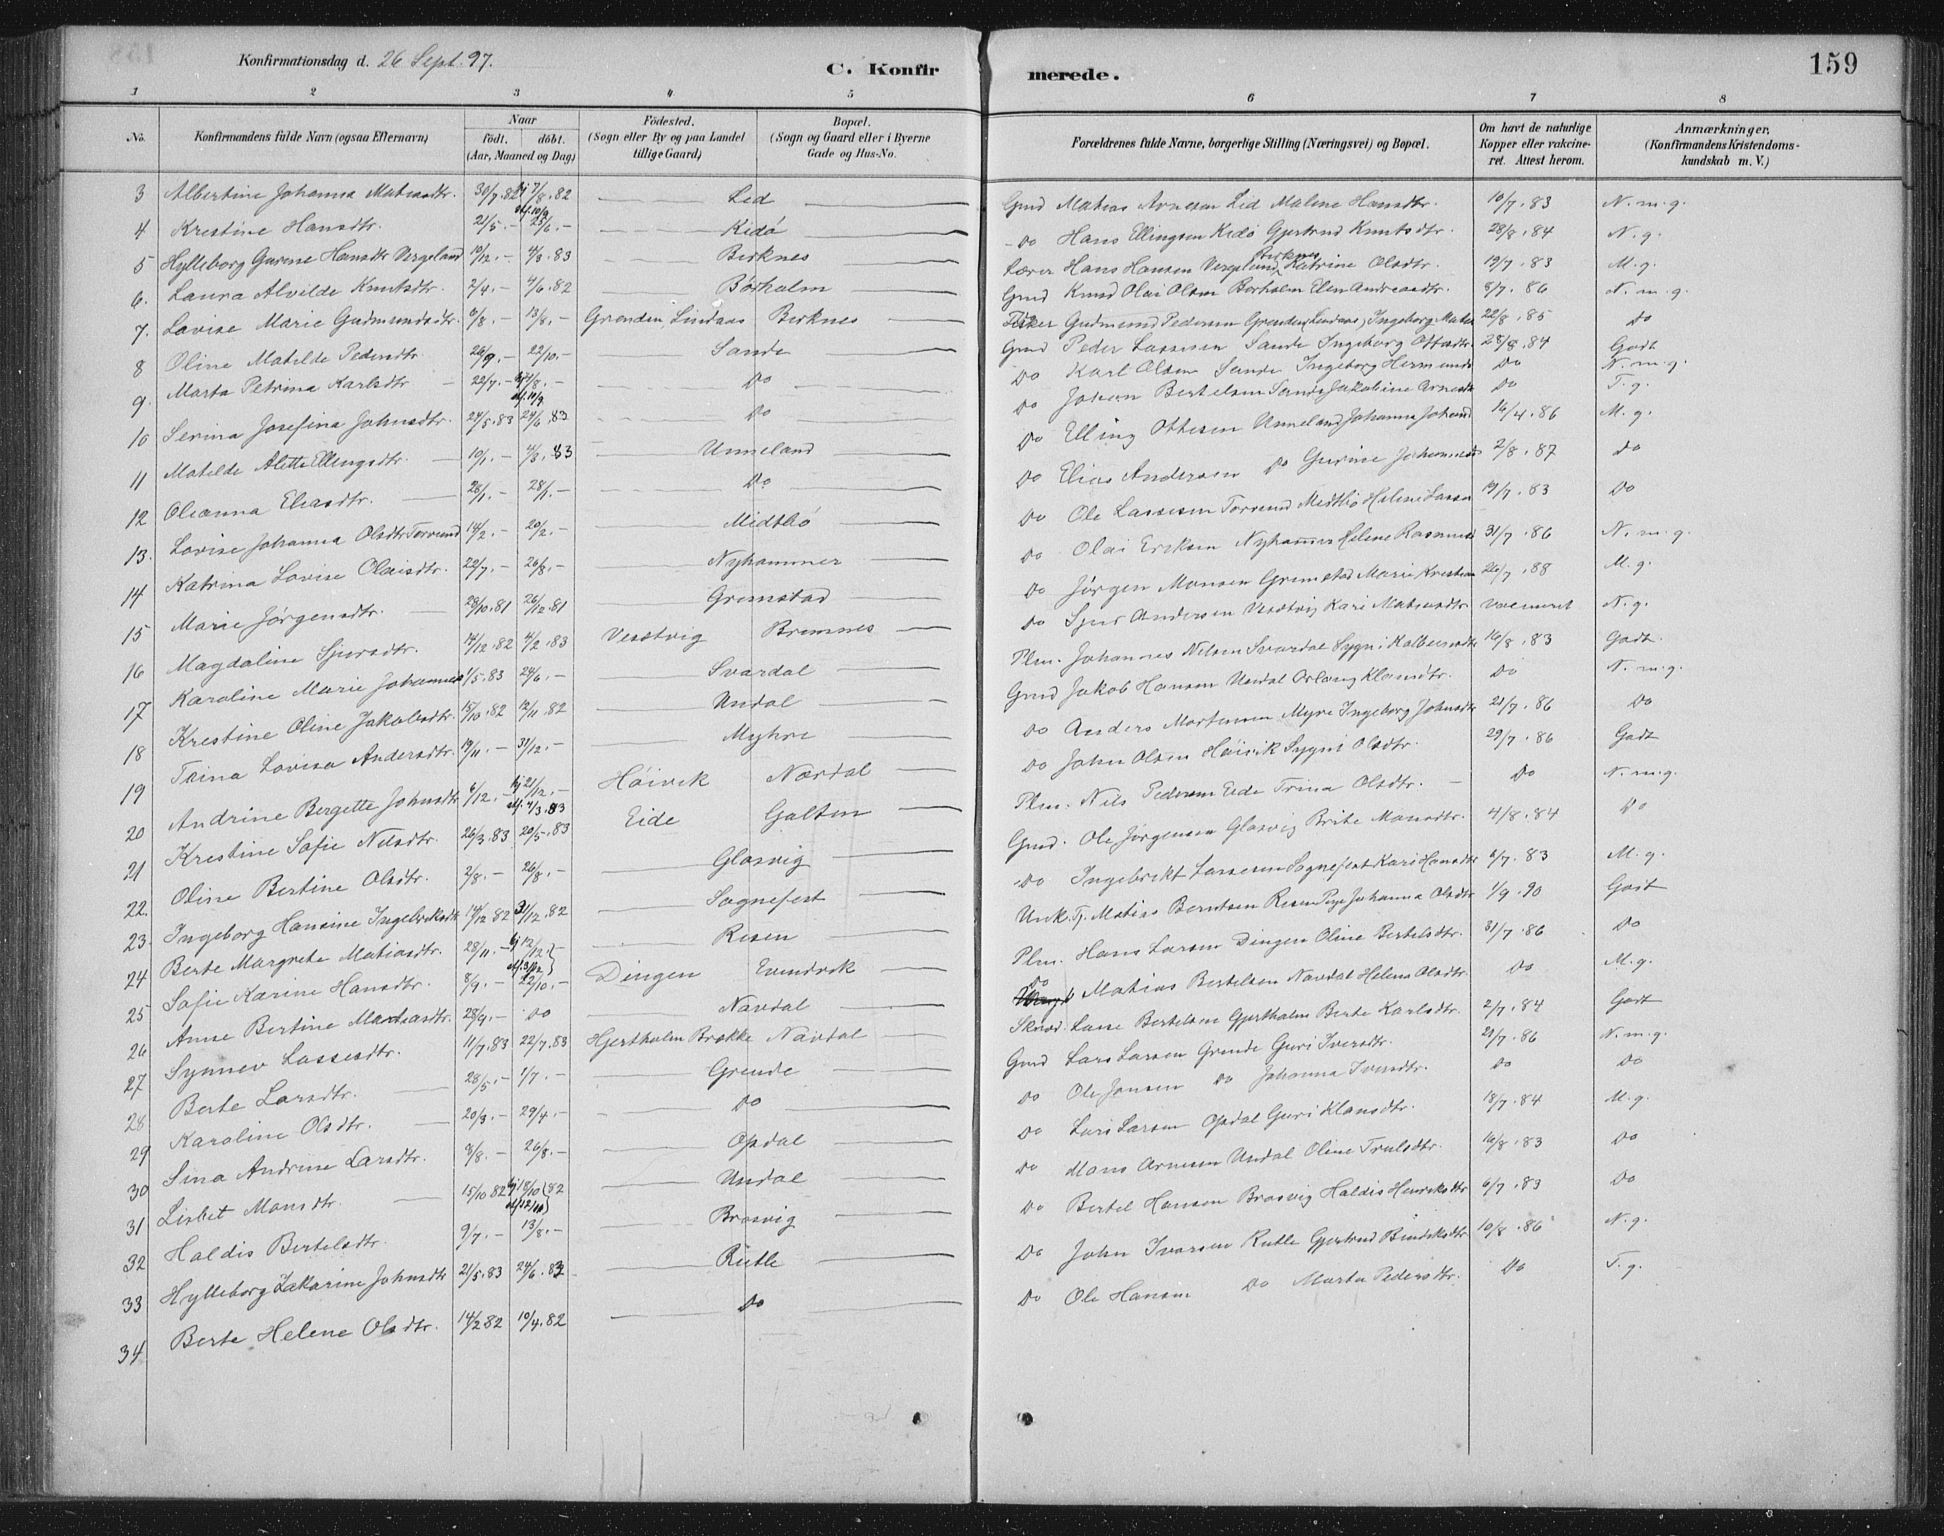 Konfirmationsdag d. 26 Sept. 97.
C. Konfirmerede.
159
1 2 3 4 5 6 7 8
No. Konfirmandens fulde Navn (ogsaa Efternavn) Naar født. døbt. (Aar, Maaned og Dag) Fødested. (Sogn eller By og paa Landet tillige Gaard) Bopæl. (Sogn og Gaard eller i Byerne Gade og Hus-No. Forældrenes fulde Navne, borgerlige Stilling (Næringsvei) og Bopæl. Om havt de naturlige Kopper eller vakcineret. Attest herom. Anmærkninger, (Konfirmandens Kristendomskundskab m. V.)
3 Albertine Johanna Matiasdtr. 30/7.82 hj 7/8.82 Lid Gmd Matias Arnesen Lid Malene Hansdtr. 10/7.83 N.m.g.
4 Kristine Hansdtr. 21/5.- 25/6.- Kidø Do Hans Ellingsen Kidø Gjertrud Knutsdtr. 28/8.84 N.g.
5 Hylleborg Gurine Hansdtr Vergeland 10/12.- 4/3.83 Birknes Lærer Hans Hansen Vergeland Birknes Katrine Olsdtr. 19/7.83 M.g.
6. Laura Alvilde Knutsdtr. 2/4.- 4/6.82 Børholm Gmd Knud Olai Olsen Borholm Elen Andreasdtr. 8/7.86 N.m.g.
7. Lovise Marie Gudmundsdtr. 9/8.- 13/8.- Grønden Lindaas Birknes Gudmund Pedersen Grønden, Lindaas, Ingeborg 22/8.85 do
8 Oline Matilde Pedersdtr. 26/9.- 22/10.- Sande Gmd Peder Lassesen Sande Ingeborg Ottesdtr. 28/8.84 Godt
9. Marta Petrina Karlsdtr 22/7.- hj 4/8.- Do Do Karl Olsen Sande Ingeborg Do N.m.g.
10 Serina Josefina Johnsdtr. 24/5.83 24/6.83 Do Do Johan Bertelsen Sande Jakobine Do T.g.
11 Matilde Alette Ellingsdtr. 10/1.- 4/3.83 Unneland Do Elling Ottesen Unneland Johanna 14/4.86 M.g.
12 Oleanna Eliasdtr. 28/1.- 28/1.- Do Do Elias Andersen Do Gurine 2/8.87 do
13. Lovise Johanna Olsdtr Torsund 14/2.- 20/2.- Midtbø Do Ole Lassesen Torsund Midtbø Helene 19/7.83 Do
14 Katrina Lovise Olaisdtr. 22/7.- 26/8.- Nyhammer Do Olai Eriksen Nyhammer Helene 31/7.86 N.m.g.
15 Marie Jørgensdtr. 28/10.81 26/12.81 Grimstad Do Jørgen Monsen Grimstad Marie 26/7.88 M.g.
16 Magdaline Sjursdtr. 14/12.82 4/2.83 Vesetvig Bremnes Do Sjur Andersen Vesetvig Kari Matiasdtr. N.g.
17 Karoline Marie Johannes 1/5.83 24/6.- Svardal Plm. Johannes Nilsen Svardal 16/8.83 Godt
18 Kristine Oline Jakobsdtr. 15/10.82 12/11.82 Undal Gmd Jakob Hansen Undal Klausdtr. Do N.m.g.
19 Trina Lovisa Andersdtr. 19/11.- 31/12.- Myhre Do Anders Mortensen Myre Ingeborg Johnsdtr 21/7.86 Do
20 Andrine Bergette Johnsdtr 6/12.- hj 21/12.- 4/3.83 Høivik Nordal Do John Olsen Høivik Sygni Olsdtr. 29/7.86 Godt
21 Kristine Sofie Nilsdtr. 26/3.83 20/5.83 Eide Galten Plm. Nils Pedersen Eide Trina Olsdtr. Do N.m.g.
22. Oline Bertine Olsdtr. 2/8.- 26/8.- Glosvig Gmd. Ole Jørgensen Glosvig Brite Monsdtr. 4/8.84 Do
23. Ingeborg Hansine Ingebrektsdtr 14/12.82 31/12.82 Sognefest Do Ingebrekt Lassesen Sognefest Kari Hansdtr 6/7.83 M.g.
24 Berte Margrete Matiasdtr. 28/11.- hj 12/12.- Risen Matias Berntsen Risen Johanna Olsdtr 1/9.90 Godt
25 Sofie Karine Hansdtr. 8/9.- 22/10.- Dingen Evindvik Plm. Hans Larsen Dingen Oline Bertelsdtr. 31/7.86 Do
26 Anne Bertine Matiasdtr. 28/9.- Do Navdal Do Matias Bertelsen Navdal Helene Olsdtr. Do M.g.
27 Synnev Lassesdtr. 11/7.83 22/7.83 Hjertholm Brække Navdal Lasse Bertelsen Gjertholm Berte Karlsdtr. 2/7.84 Godt
28 Berte Larsdtr. 28/5.- 1/7.- Grende Gmd Lars Larsen Grende Guri Iversdtr. 21/7.86 N.m.g.
29 Karoline Olsdtr. 20/3.- 29/4.- Do Do Ole Jonsen Do Johanna Iversdtr. Do Do
30 Sina Andrine Larsdtr. 3/8.- 26/8.- Opdal Do Lars Larsen Opdal Guri Klausdtr. 18/7.84 M.g.
31 Lisbet Monsdtr. 15/10.82 hj 18/10.82 Undal Do Mons Arnesen Undal Oline Trulsdtr. 16/8.83 Do
32 Haldis Bertelsdtr. 9/7.- 13/8.- Brosvig Do Bertel Hansen Brosvig Haldis Henriksdtr 6/7.83 Do
33 Hylleborg Zakarine Johnsdtr 21/5.83 24/6.83 Rutle Do John Ivarsen Rutle Gjertrud 10/8.86 N.g.
34 Berte Helene Olsdtr. 14/2.82 10/4.82 Do Do Ole Hansen Do Marta Pedersdtr. Do T.g.